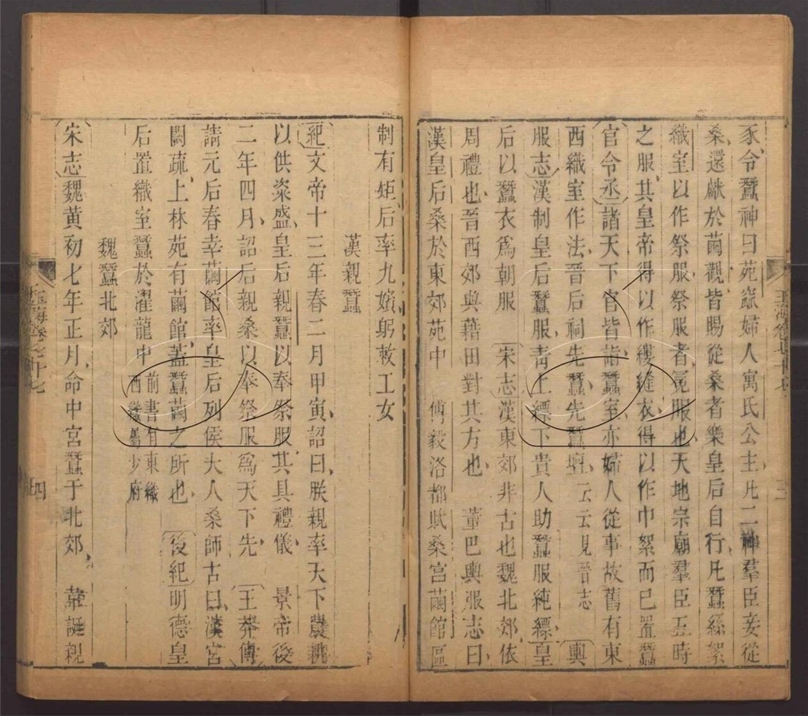 豕令蠶神曰苑窳婦人寓氏公主凡二神羣臣妾從
桑還獻於繭觀皆賜從桑者樂皇后自行凡蠶絲絮
織室以作祭服祭服者冕服也天地宗廟羣臣五時
之服其皇帝得以作縷縫衣得以作巾絮而已置蠶
官令丞諸天下官皆詣蠶室亦婦人從事故舊有東
西織室作法晉后祠先蠶先蠶壇云云見晉志 輿
服志漢制皇后蠶服青上縹下貴人助蠶服純縹皇
后以蠶衣爲朝服 宋志漢東郊非古也魏北郊依
周禮也晉西郊與藉田對其方也 董巴輿服志曰
漢皇后桑於東郊苑中 傅毅洛都賦桑宮繭館區
制有矩后率九嬪躬敕工女
漢親蠶
紀文帝十三年春二月甲寅詔曰朕親率天下農耕
以供粢盛皇后親蠶以奉祭服其具禮儀 景帝後
二年四月詔后親桑以奉祭服爲天下先 王莽傳
請元后春幸繭館率皇后列侯夫人桑師古曰漢宮
闕疏上林苑有繭館蓋蠶繭之所也 後紀明德皇
后置織室蠶於濯龍中前書有東織西織屬少府
魏蠶北郊
宋志魏黃初七年正月命中宮蠶于北郊 韋誕親